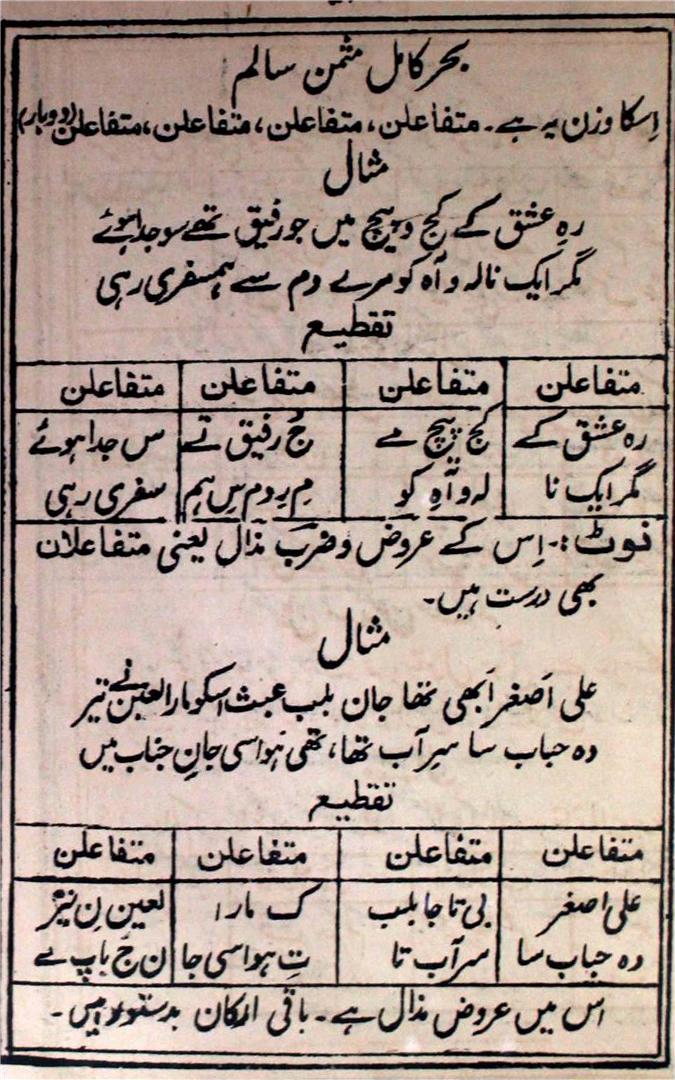 بحر کامل مثمن سالم
اِسکا وزن یہ ہے۔ متفاعلن، متفاعلن، متفاعلن، متفاعلن (دوبار)
مثال
رہِ عشق کے کج و پیچ میں جو رفیق تھے سو جدا ہوئے
مگر ایک نالہ و آہ کو مرے دم سے ہمسفری رہی
تقطیع
متفاعلن متفاعلن متفاعلن متفاعلن
رہ عشق کے کج پیچ مے جُ رفیق تے س جدا ہوئے
مگر ایک نا لہ و آہِ کو مِ رِ دم سِ ہم سفری رہی
نوٹ:۔ اِس کے عروض و ضرب مذال یعنی متفاعلان
بھی درست ہیں۔
مثال
علی اَصغر اَبھی تھا جان بلب عبث اسکو مارا لعین نے تیر
وہ حباب سا سرِ آب تھا، تھی ہوا سی جانِ جناب میں
تقطیع
متفاعلن متفاعلن متفاعلن متفاعلن
علی اصغر بی تا جا بلب ک مارا لعین نِ تیر
وہ حباب سا سر آب تا تِ ہوا سی جا ن جَ باپ مے
اس میں عروض مذال ہے۔ باقی ارکان بدستور ہیں۔